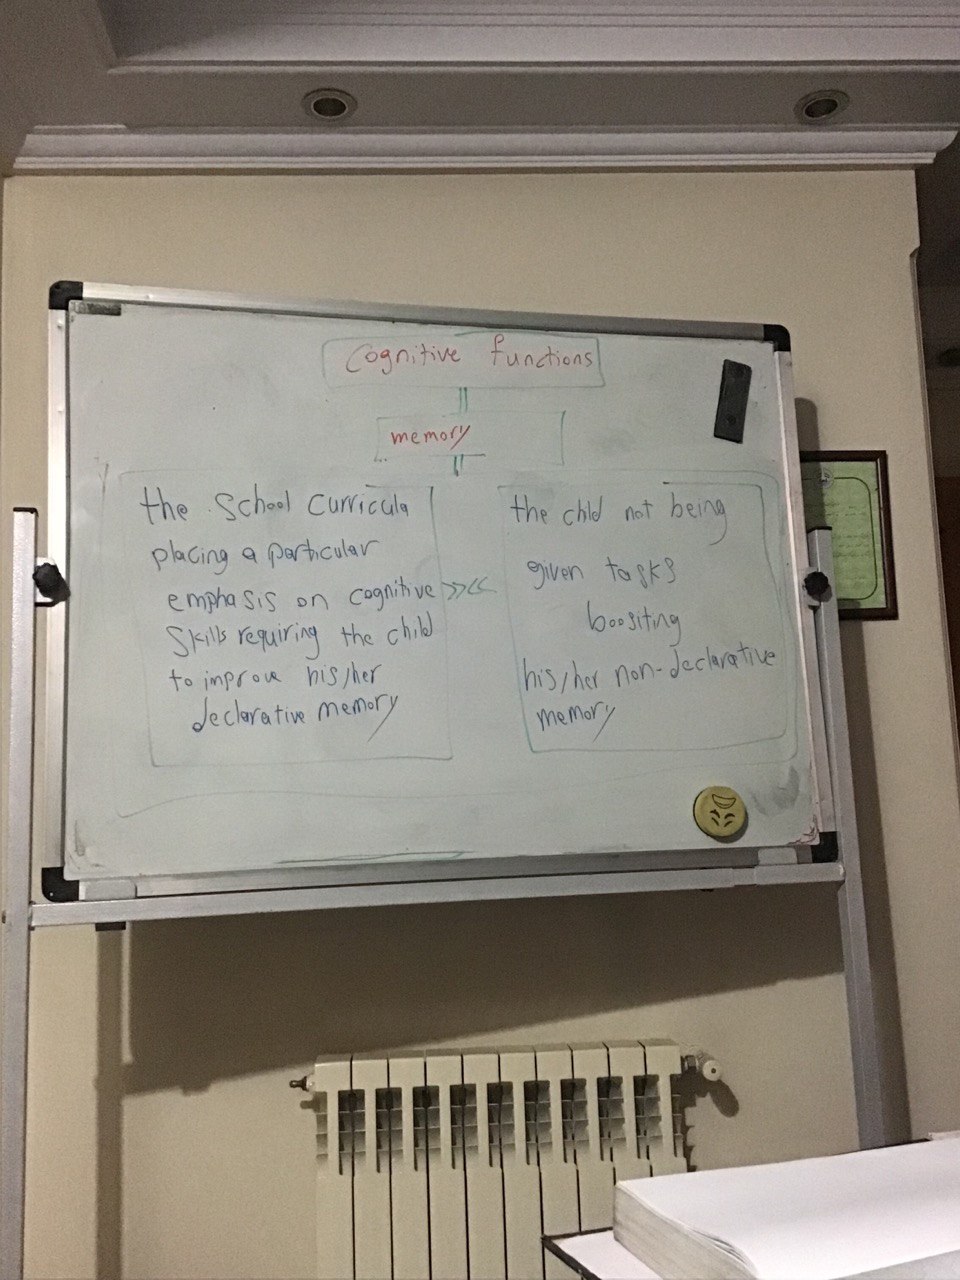 Cognitive functions
memory
the School Curricula
placing a particular
emphasis on cognitive
Skills requiring the child
to improve his/her
declarative memory
the chld not being
given tasks
boositing
his/her non-declarative
memory